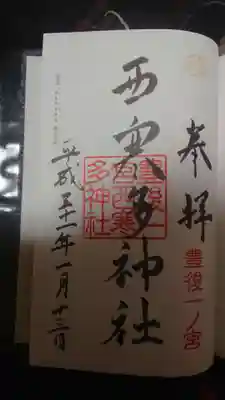 奉拝
豊後一ノ宮
西寒多神社
豊後一
宮西寒
多神社
平成三十一年一月十三日